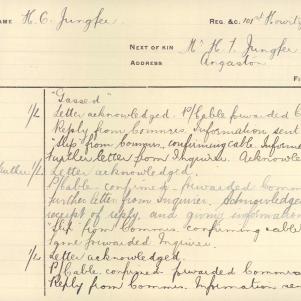 NAME H. C. Jungfer REG. &C. 101st Howitz
NEXT OF KIN Mr H. T. Jungfer
ADDRESS Angaston
"Gassed"
1/2 Letter acknowledged. P/Cable forwarded Co
Reply from Commrs. Information sent
"Slip" from Commrs. confirming cable. Inform
Further letter from Inquirer. Acknowle
1/2 Letter acknowledged.
P/Cable. confirming forwarded Comm
further letter from Inquirer. Acknowledged
receipt of reply, and giving information
Slip from Commrs. confirming cable
same forwarded Inquirer.
1/2 Letter acknowledged.
P/Cable. confirmed forwarded Commrs
Reply from Commrs. Information sen